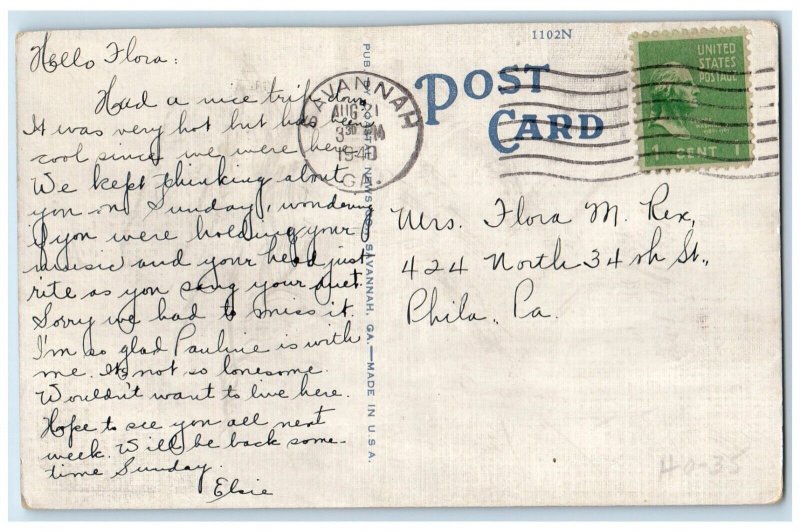 Hello Flora:
Had a nice trip down
It was very hot but has been
cool since we were here
We kept thinking about
you on Sunday, wondering
if you were holding your
music and your head just
rite as you sang your duet.
Sorry we had to miss it.
I'm so glad Pauline is with
me. Its not so lonesome.
Wouldn't want to live here.
Hope to see you all next
week. Will be back some-
time Sunday.
Elsie
SAVANNAH, GA.—MADE IN U.S.A.
1102N
POST
CARD
SAVANNAH
AUG 21
3 30 PM
1940
GA.
UNITED
STATES
POSTAGE
1 CENT 1
Mrs. Flora M. Rex,
424 North 34th St.,
Phila., Pa.
40-35